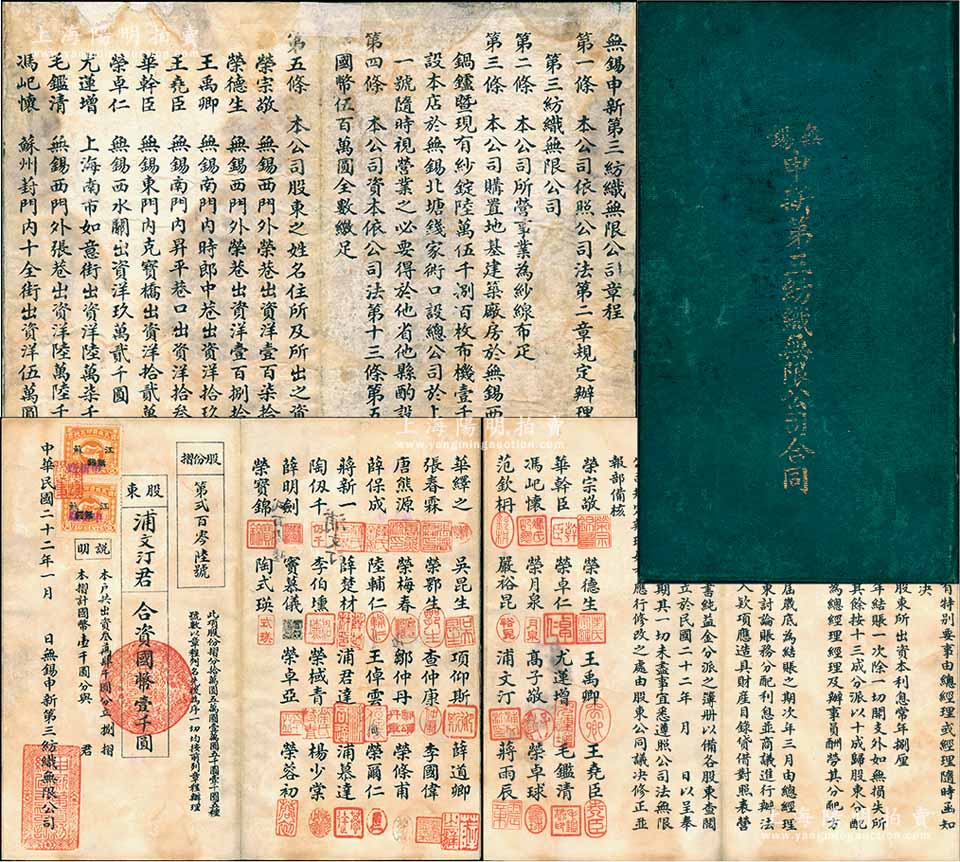 無錫
申新第三紡織無限公司合同
無錫申新第三紡織無限公司章程
第一條　本公司依照公司法第二章規定辦理
第三紡織無限公司
第二條　本公司所營事業為紗線布疋
第三條　本公司購置地基建築廠房於無錫西
鍋鑪暨現有紗錠陸萬伍千捌百枚布機壹千
設本店於無錫北塘錢家衖口設總公司於上
一號隨時視營業之必要得於他省他縣酌設
第四條　本公司資本依公司法第十三條第五
國幣伍百萬圓全數繳足
第五條　本公司股東之姓名住所及所出之資
榮宗敬　無錫西門外榮巷出資洋壹百柒拾
榮德生　無錫西門外榮巷出資洋壹百捌拾
王禹卿　無錫南門內時郎中巷出資洋拾玖
王堯臣　無錫南門內昇平巷口出資洋拾叁
華幹臣　無錫東門內克寶橋出資洋拾貳萬
榮卓仁　無錫西水關出資洋玖萬貳千圓
尤蓮增　上海南市如意街出資洋陸萬柒千
毛鑑清　無錫西門外張巷出資洋陸萬陸千
馮屺懷　蘇州葑門內十全街出資洋伍萬圓
有特別要事由總經理或經理隨時函知
決
股東所出資本利息常年捌厘
年結賬一次除一切開支外如無損失所
其餘按十三成分派以十成歸股東分配
為總經理經理及辦事員酬勞其分配方
屆歲底為結賬之期次年三月由總經理
東討論賬務分配利息並商議進行辦法
入欵項應造具財産目錄貸借對照表營
書純益金分派之簿冊以備各股東查閱
立於民國二十二年　月　日以呈奉
期其一切未盡事宜悉遵照公司法無限
應行修改之處由股東公同議決修正並
報部備核
榮宗敬　榮德生　王禹卿　王堯臣
華幹臣　榮卓仁　尤蓮增　毛鑑清
馮屺懷　榮月泉　高子敬　榮卓球
范欽枬　嚴裕昆　浦文汀　蔣雨辰
華繹之　吳昆生　項仰斯　薛道卿
張春霖　榮鄂生　查仲康　李國偉
唐熊源　榮梅春　鄒仲丹　榮條甫
薛保成　陸輔仁　王倬雲　榮爾仁
蔣新一　薛楚材　浦君達　浦慕達
陶伋千　李伯壎　榮棫青　楊少棠
薛明劍　竇慕儀　榮卓亞　榮蓉初
榮寶錦　陶式瑛
股份摺
第貳百零陸號
此項股份摺分拾萬圓五萬圓壹萬圓五千圓壹千圓五種
號數以章程列名之後為序一切均按前列章程辦理
股東　浦文汀君　合資國幣壹千圓
說明
本戶共出資叁萬肆千圓分立捌摺
本摺計國幣壹千圓分與　君
中華民國二十二年一月　日無錫申新第三紡織無限公司
江蘇
江蘇
上海陽明拍賣
www.yangmingauction.com